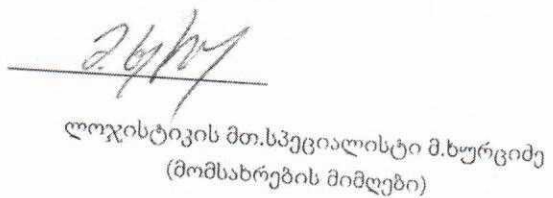 ლოჯისტიკის მთ.სპეციალისტი მ.ხურციძე
(მომსახრების მიმღები)